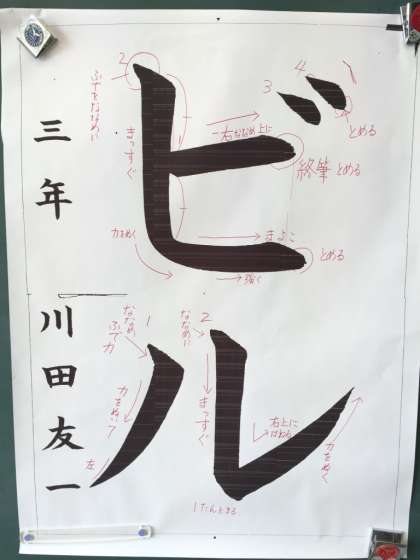 ビル
三年 川田友一
2
3
4
ふでをななめに
まっすぐ
右ななめ上に
とめる
終筆 とめる
力をぬく
まよこ
とめる
強く
1
ななめ
ふで力
力をぬいて
左
2
ななめに
まっすぐ
右上に
はねる
力をぬく